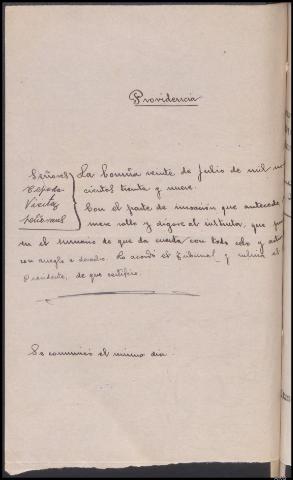 Providencia
Señores
Cepeda
Vicitez
La Coruña veinte de Julio de mil no
cientos treinta y nueve.
Con el parte de incoación que antecede
rollo y digase al instructor, que
en el sumario de que da cuenta con todo celo y
con arreglo a derecho. Lo acordó el Tribunal y rubrica el
Presidente, de que certifico.
Se comunicó el mismo dia.